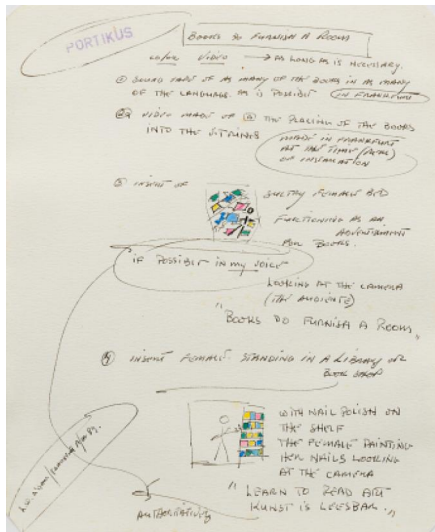 PORTIKUS
BOOKS DO FURNISH A ROOM
VIDEO → AS LONG AS IS NECESSARY.
① SOUND TAPE OF AS MANY OF THE BOOKS IN AS MANY
OF THE LANGUAGE AS IS POSSIBLE IN FRANKFURT
VIDEO MADE OF THE PLACING OF THE BOOKS
INTO THE STRINGS
MADE IN FRANKFURT
AT THE TIME (REAL)
OF INSTALLATION
③ INSERT OF
SULTRY FEMALE
FUNCTIONING AS AN
ADVERTISEMENT
FOR BOOKS.
IF POSSIBLE IN MY VOICE
LOOKING AT THE CAMERA
(THE AUDIENCE)
"BOOKS DO FURNISH A ROOM"
④ INSERT FEMALE STANDING IN A LIBRARY OR
BOOK SHOP
WITH NAIL POLISH ON
THE SHELF
THE FEMALE PAINTING
HER NAILS LOOKING
AT THE CAMERA
"LEARN TO READ ART
KUNST IS LEESBAR."
AUTHORITATIVELY